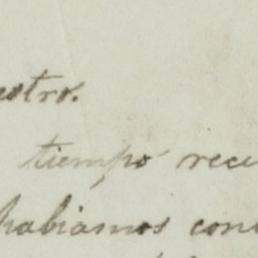 estro.
tiempo reci
habiamos con